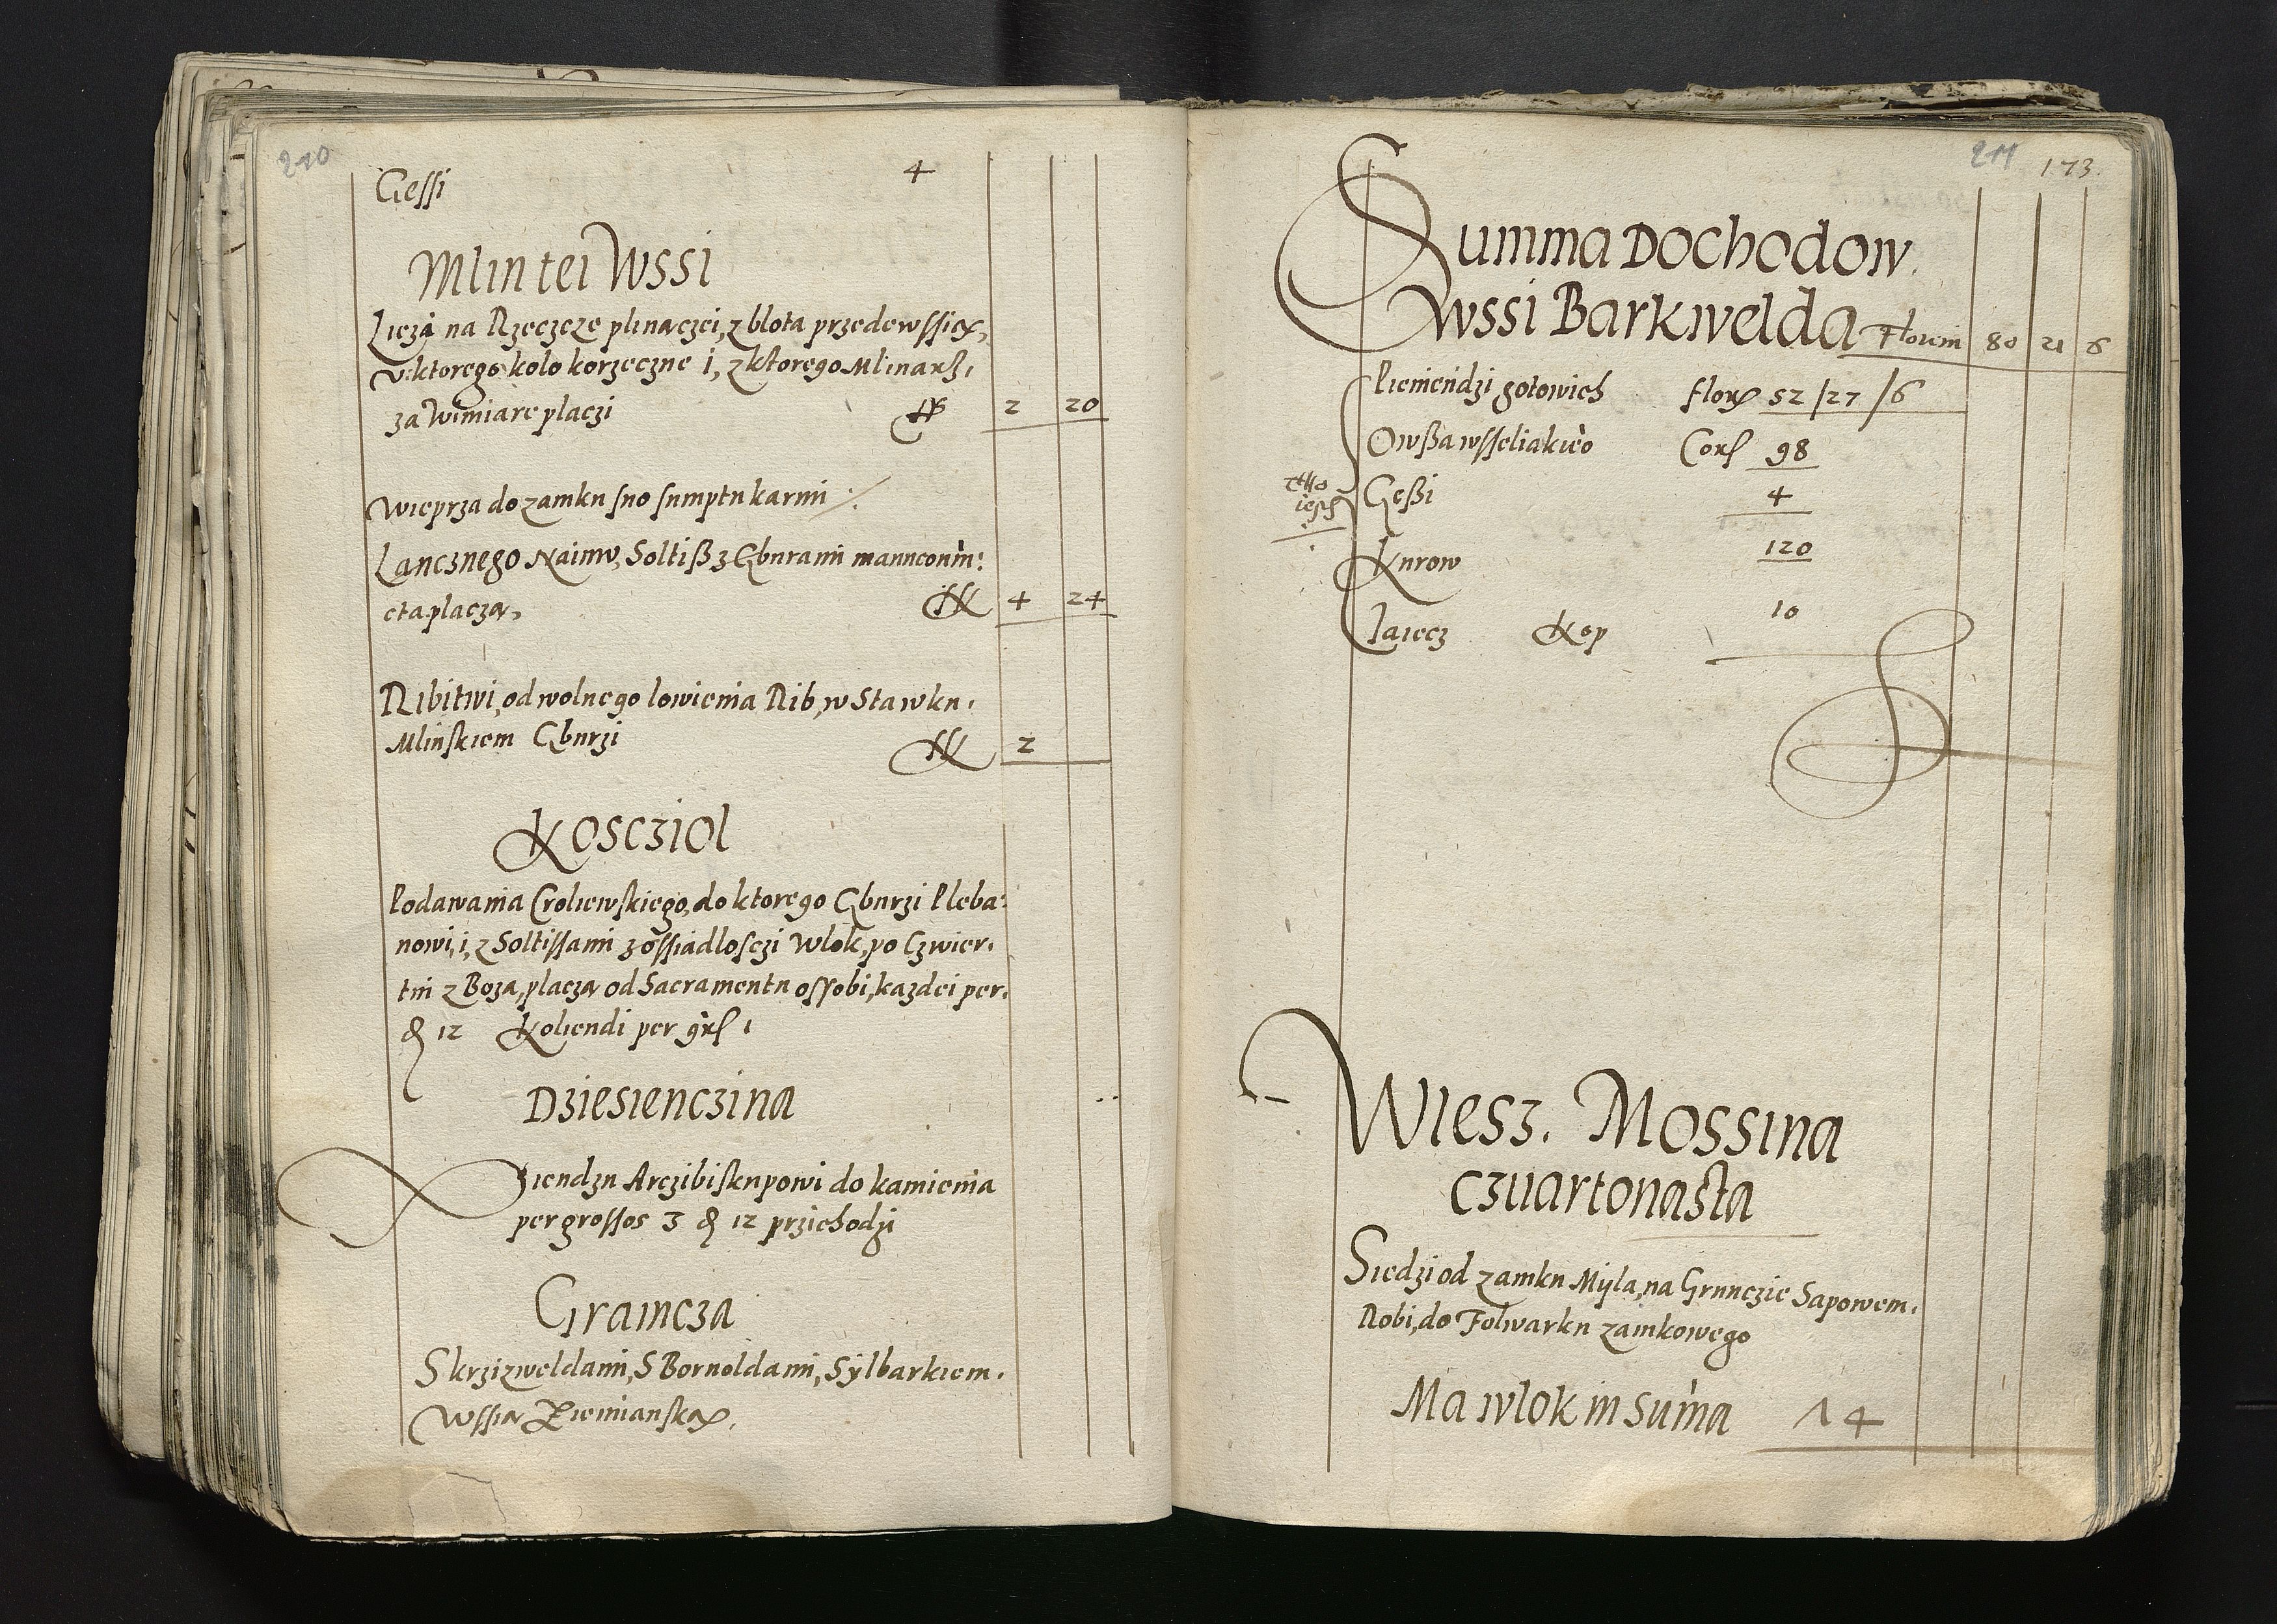 210
Gessi 4
Mlin tei Wssi
Liezą na Rzeczcze plinaczei, z blota przede wssią,
v ktorego kolo korzeczne 1, z ktorego Mlinarz,
za Wimiare placzi 2 20
Wieprza do zamku sno sumptu karmi
Lancznego Naimu, Soltiß z Gburami manuconiu:
cta placzą, 4 24
Ribitwi, od wolnego lowienia Rib, w Stawku,
Mlinskiem Gburzi 2
Koscziol
Podawania Croliewskiego, do ktorego Gburzi Pleba:
nowi, i, z Soltissami z ossiadlosczi Wlok, po Czwier,
tni z Boza, placzą od Sacramentu ossobi, kazdei per,
₰ 12 Koliendi per grs 1
Dziesienczina
Xiendzu Arczibiskupowi do kamienia
per grossos 3 ₰ 12 przichodzi
Graincza
S krzizweldami, S Bornoldami, Sylbarkiem,
Wssią Ziemianską.
211 173.
Summa Dochodow
wssi Barkwelda Floren 80 21 6
Pieniendzi gotowich flor 52/27/6
Owßa wsseliakiego Cors 98
Geßi 4
Kurow 120
Iaiecz Kop 10
Wiesz. Mossina
czuartonasta
Siedzi od zamku Myla, na Grunczie Sapowem,
Robi, do Folwarku zamkowego
Ma wlok in suma 14